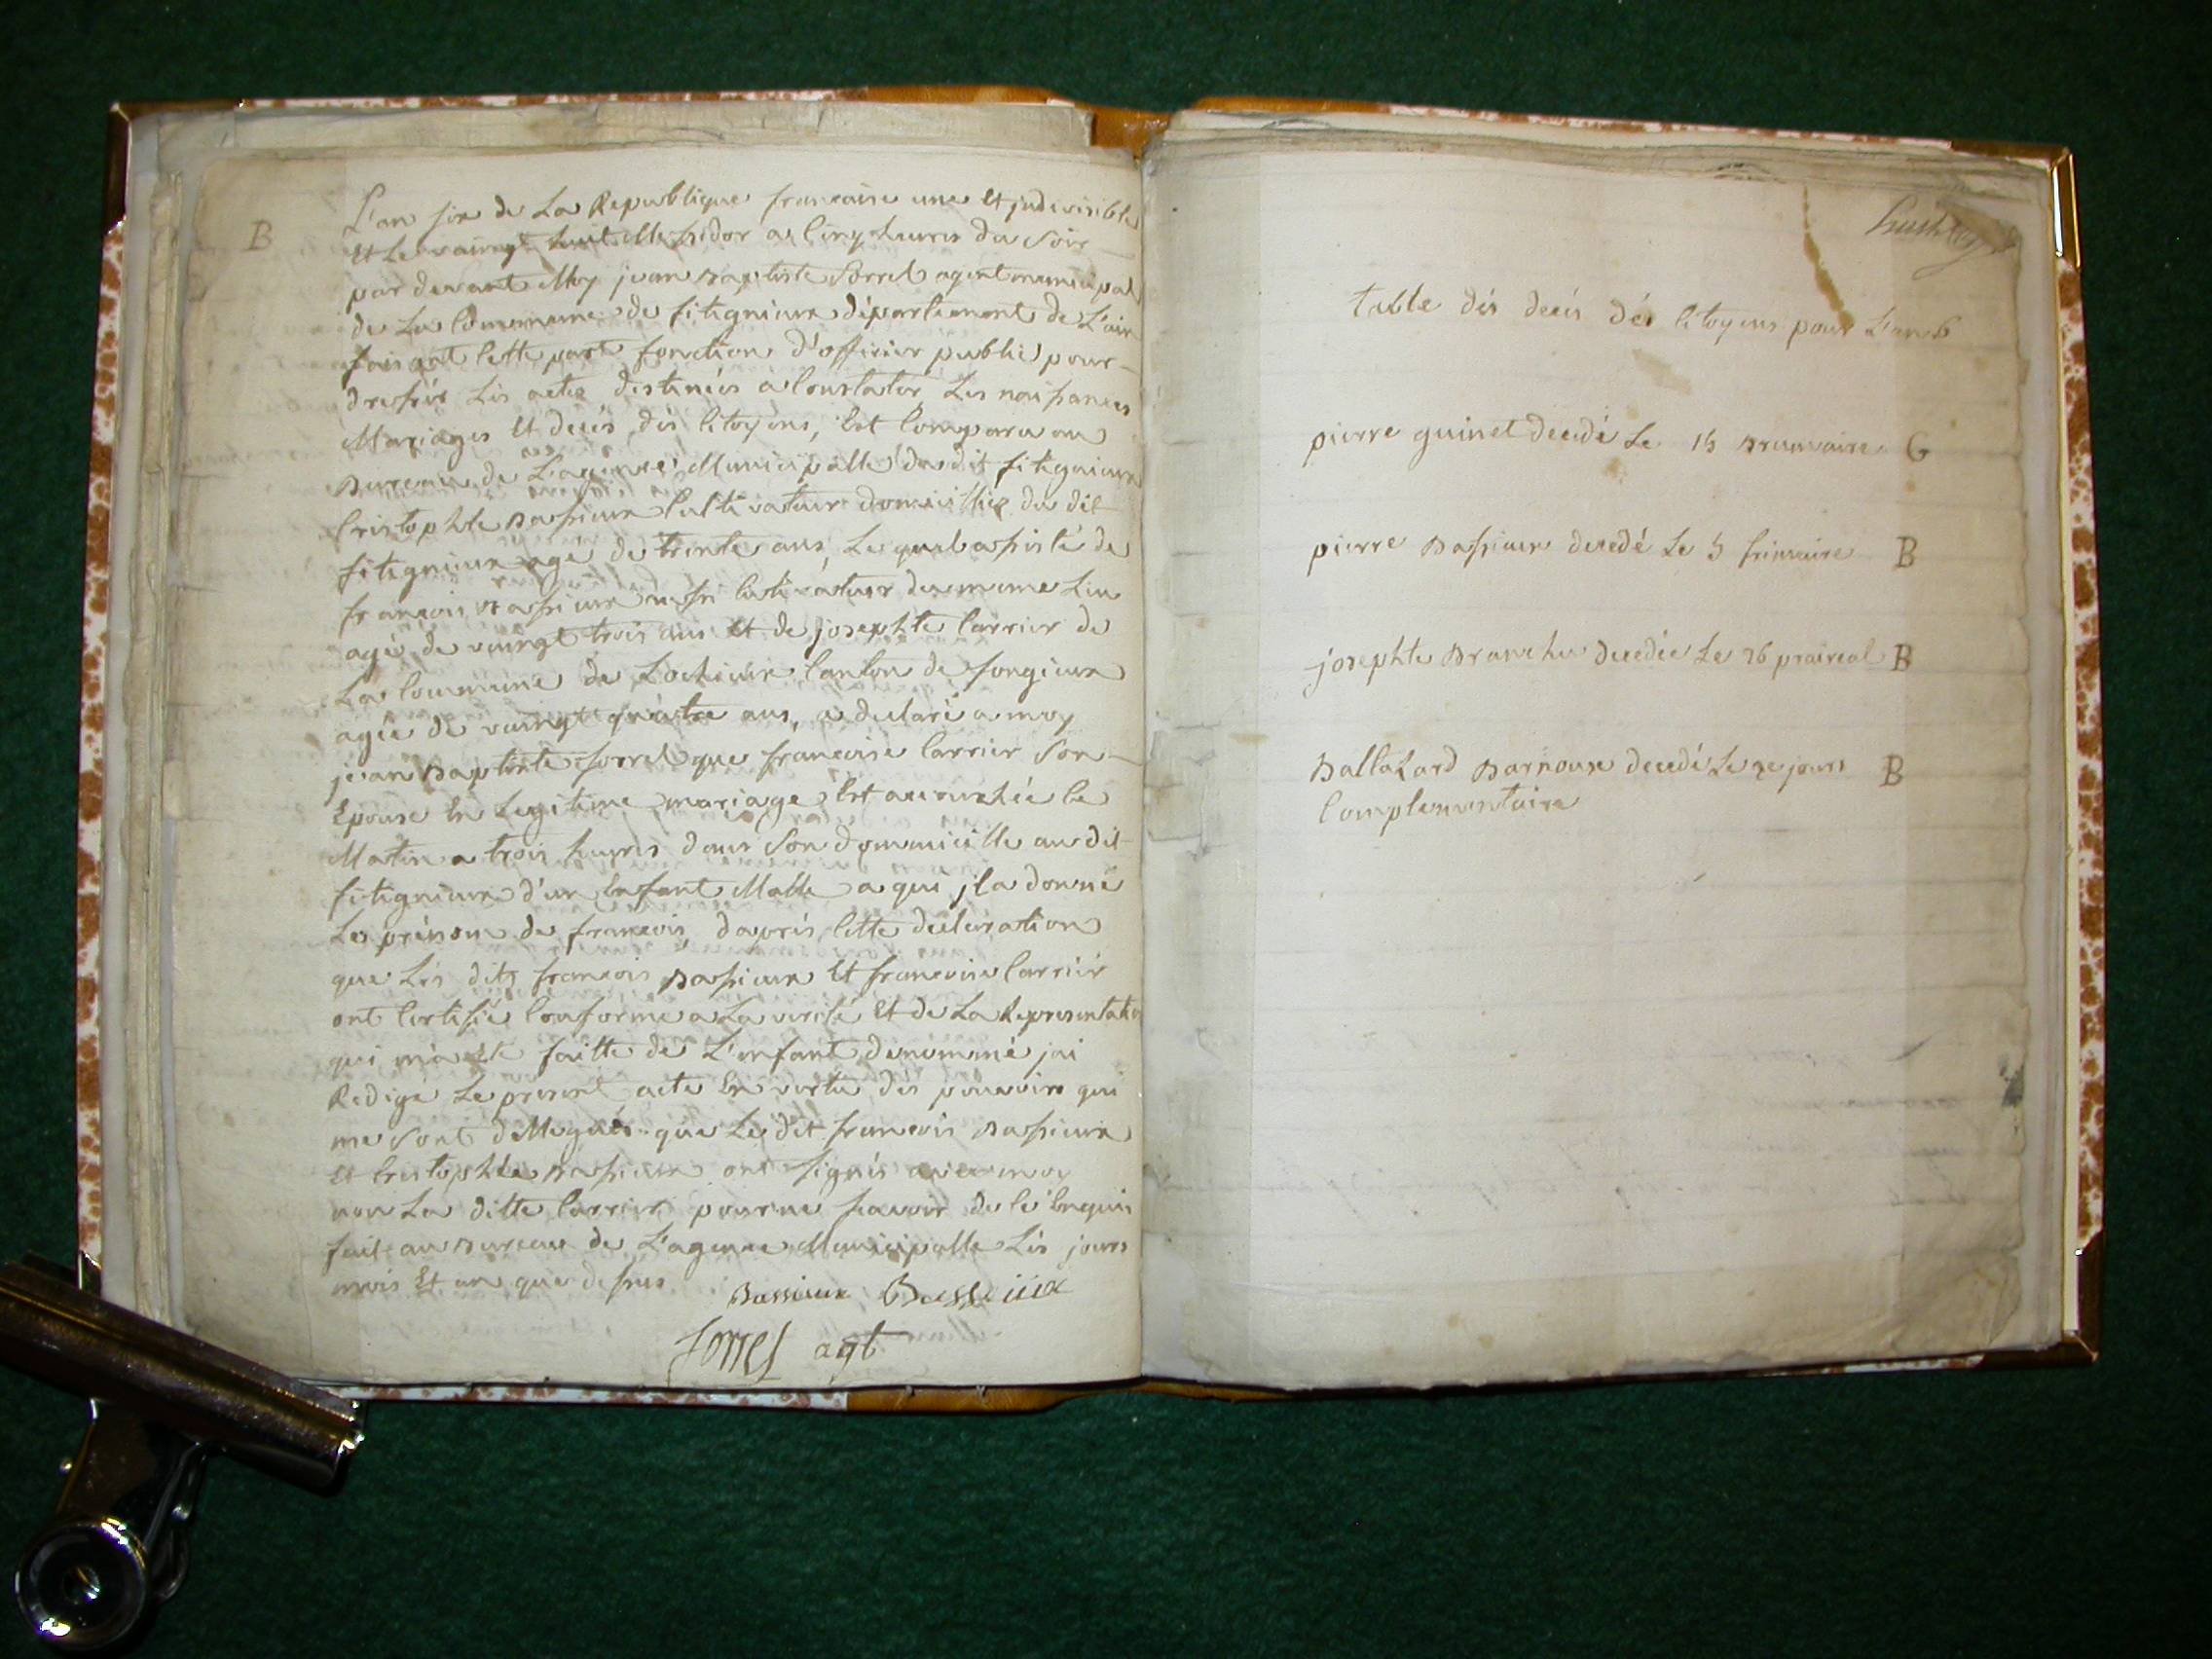 B
L'an six de La Republique francaise une Et jndivisible
Et Le vaingt huit Messidor a Cinq heures du Soir
par devant Moy jean Baptiste Sorrel agent municipal
de La Commune de fitignieux département de L'ain
faisant Cette part fonction d'officier public pour
dressér Lés actes destinées a Constater Les naissances
Mariages Et decés dés Citoyens, Est Comparu au
Bureau de L'agence Municipalle du dit fitignieux
Cristophle Bassieux Cultivateur domicillié du dit
fitignieux agé de trente ans, Le quel assisté de
francois Bassieux aussi Cultivateur du meme Lieu
agé de vaingt trois ans Et de josephte Carrier de
La Commune de Lochieux Canton de Songieux
agée de vaingt quatre ans, a declaré a moy
jean Baptiste Sorrel que francoise Carrier Son
Epouse En Legitime mariage Est accouchée Ce
Matin a trois heures dans Son domaicille au dit
fitignieux d'un Enfant Malle a qui jla donné
Le prénom de francois, daprés Cette declaration
que Lés dits francois Bassieux Et francoise Carriér
ont Certifié Conforme a La verité Et de La Representation
qui m'a été faitte de L'enfant denommé jai
Redigé Le present acte En vertu dés pouvoirs qui
me Sont dellegués que Le dit francois Bassieux
Et Cristophle Bassieux ont Signés avec moy
non La ditte Carrier pour ne Scavoir de Ce Enquis
fait au Bureau de L'agence Municipalle Lés jours
mois Et an que dessus
Bassieux Bassieux
Sorrel agt
table dés decés dés Citoyens pour L'an 6
pierre guinet decedé Le 15 Brumaire G
pierre Bassieux decedé Le 5 frimaire B
josephte Branche decedée Le 26 praireal B
Ballazard Barnoux decedé Le 2e jours B
Complementaire